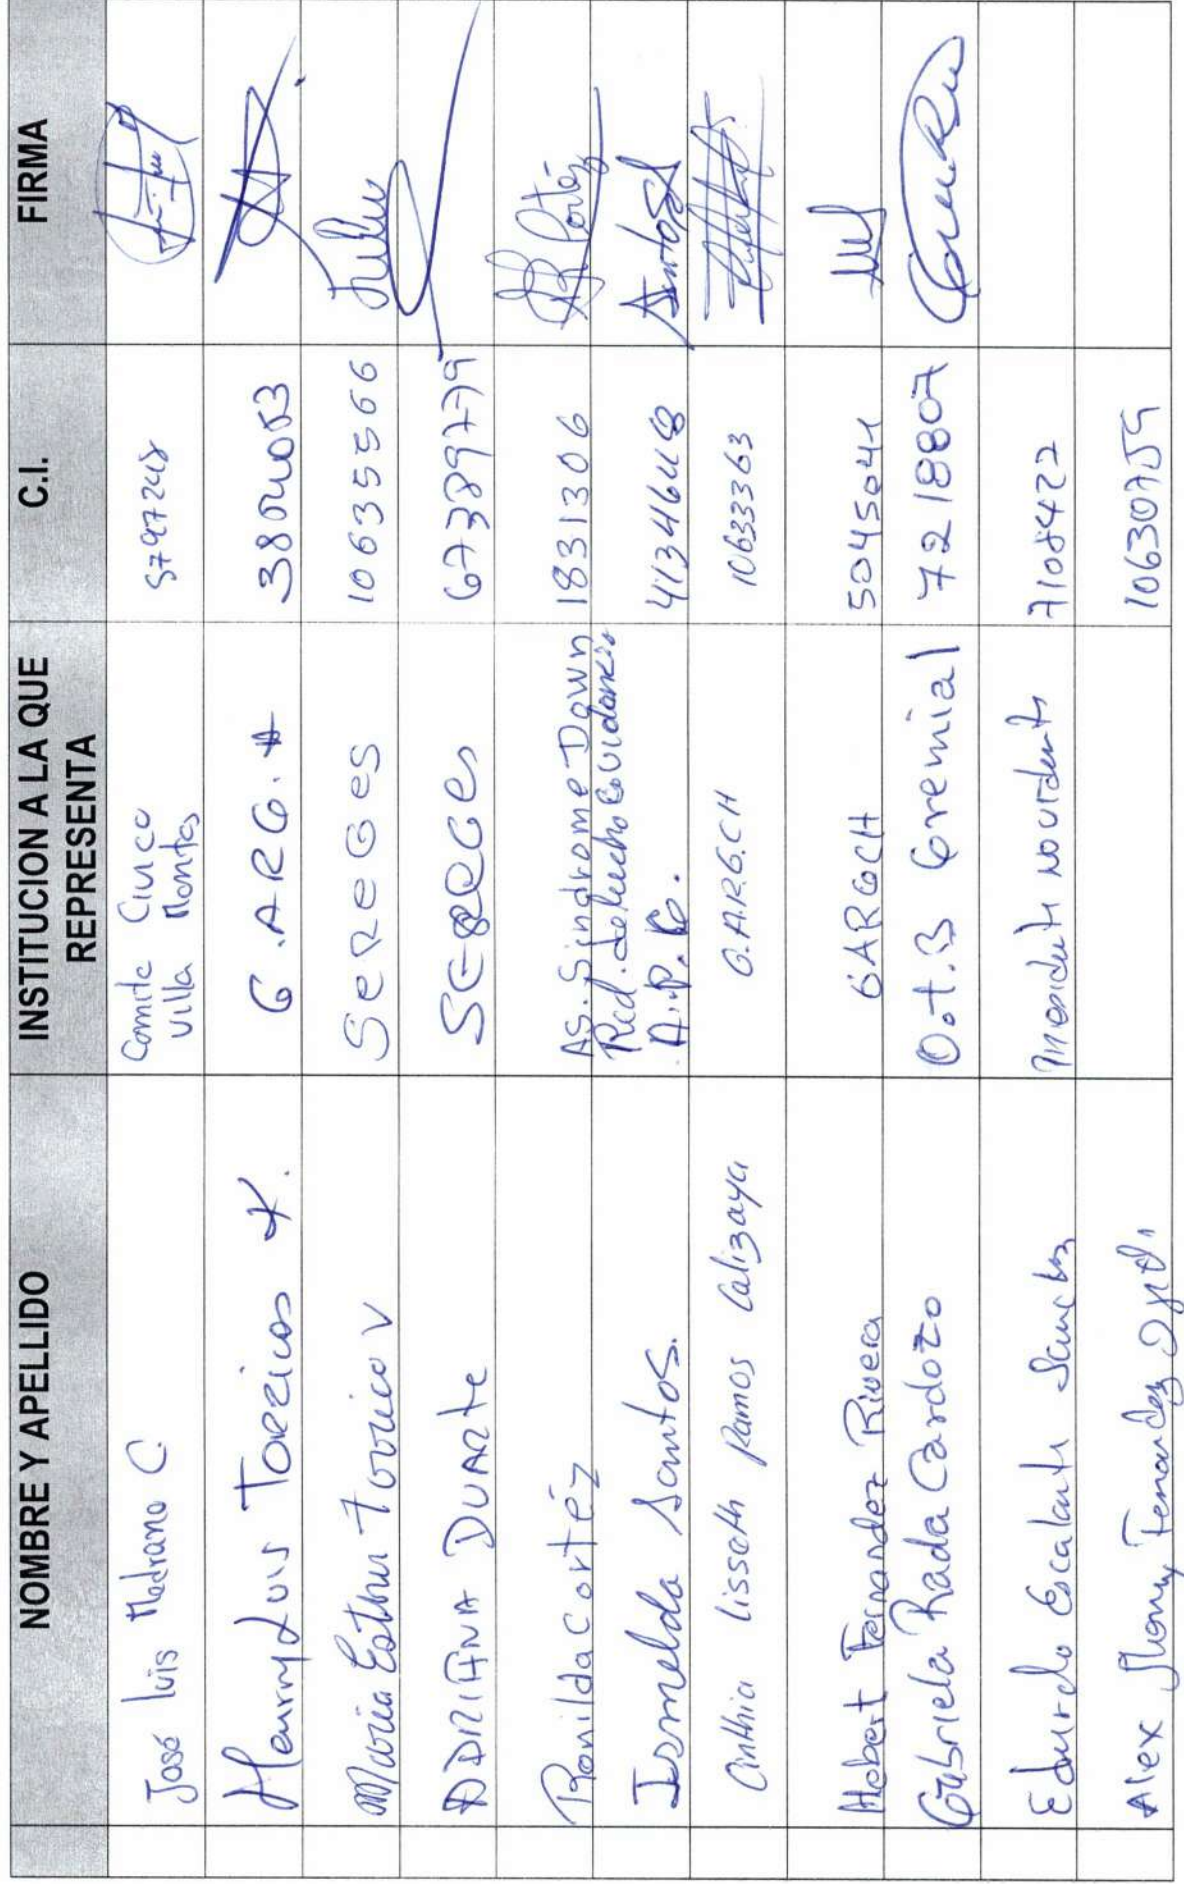 NOMBRE Y APELLIDO INSTITUCION A LA QUE REPRESENTA C.I. FIRMA
José luis Medrano C. Comite Civico Villa Montes 5797248
Henry Luis Torricos G.ARG. 3804053
Maria Esther Torrico V SeReGes 10635566
ADRIANA DUARTE 67389779
Ronilda Cortéz As. Sindrome Down 1831306 Cortéz
Ismelda Santos. Red. 41346448 Santos
Cinthia lisseth Ramos Calizaya G.A.R.G.CH 10633363
Hobert Fernandez Rivera GARGCH 5045044
Gabriela Rada Cardozo O.t.B Gremial 7218807
Eduardo Escalante Sanchez 7108422
Alex Fernandez 10630759